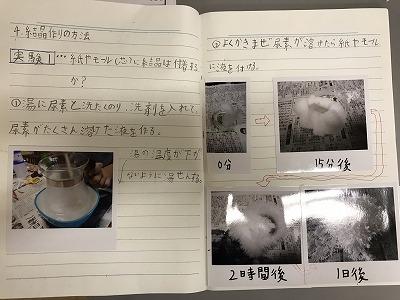 4 結晶作りの方法
実験1 … 紙やモールなどに結晶は付着する
か?
①湯に尿素と洗たくのり、洗剤を入れて、
尿素がたくさん溶けた液を作る。
湯の温度が下が
らないように湯せんする。
②よくかきまぜ尿素が溶けたら紙やモール
に液を付ける。
0分
15分後
2時間後
1日後